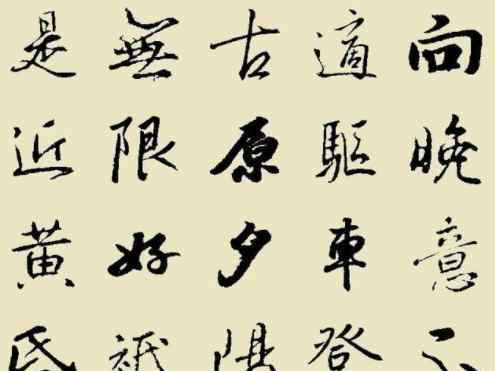 向晚意不
適驅車登
古原夕陽
無限好祇
是近黃昏